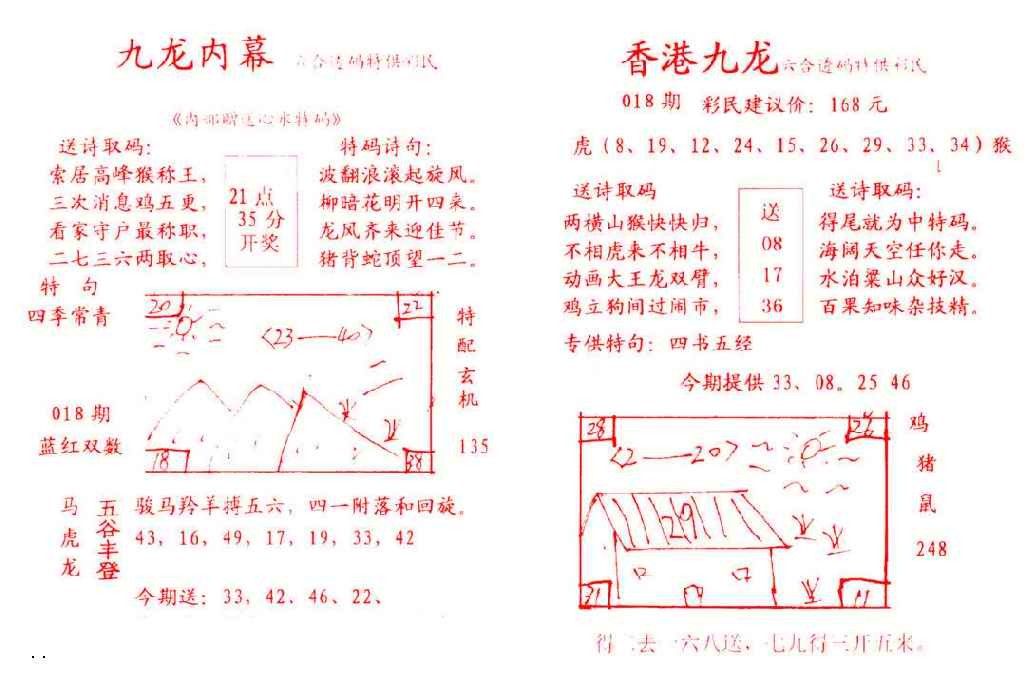 九龙内幕 六合透码特供彩民
《内部赠送心水特码》
送诗取码：
索居高峰猴称王，
三次消息鸡五更，
看家守户最称职，
二七三六两取心，
21点
35分
开奖
特码诗句：
波翻浪滚起旋风。
柳暗花明开四来。
龙凤齐来迎佳节。
猪背蛇顶望一二。
特 句
四季常青
018期
蓝红双数
20
22
<23——40>
18
38
特
配
玄
机
135
马
虎
龙
五谷丰登
骏马羚羊搏五六，四一附落和回旋。
43，16，49，17，19，33，42
今期送：33，42、46、22、
香港九龙 六合透码特供彩民
018期 彩民建议价：168元
虎（8、19、12、24、15、26、29、33、34）猴
送诗取码
两横山猴快快归，
不相虎来不相牛，
动画大王龙双臂，
鸡立狗间过闹市，
送
08
17
36
送诗取码：
得尾就为中特码。
海阔天空任你走。
水泊梁山众好汉。
百果知味杂技精。
专供特句：四书五经
今期提供 33、08。25 46
28
<2——20>
29
鸡
猪
鼠
248
得二去一六八送，七九得三开五来。